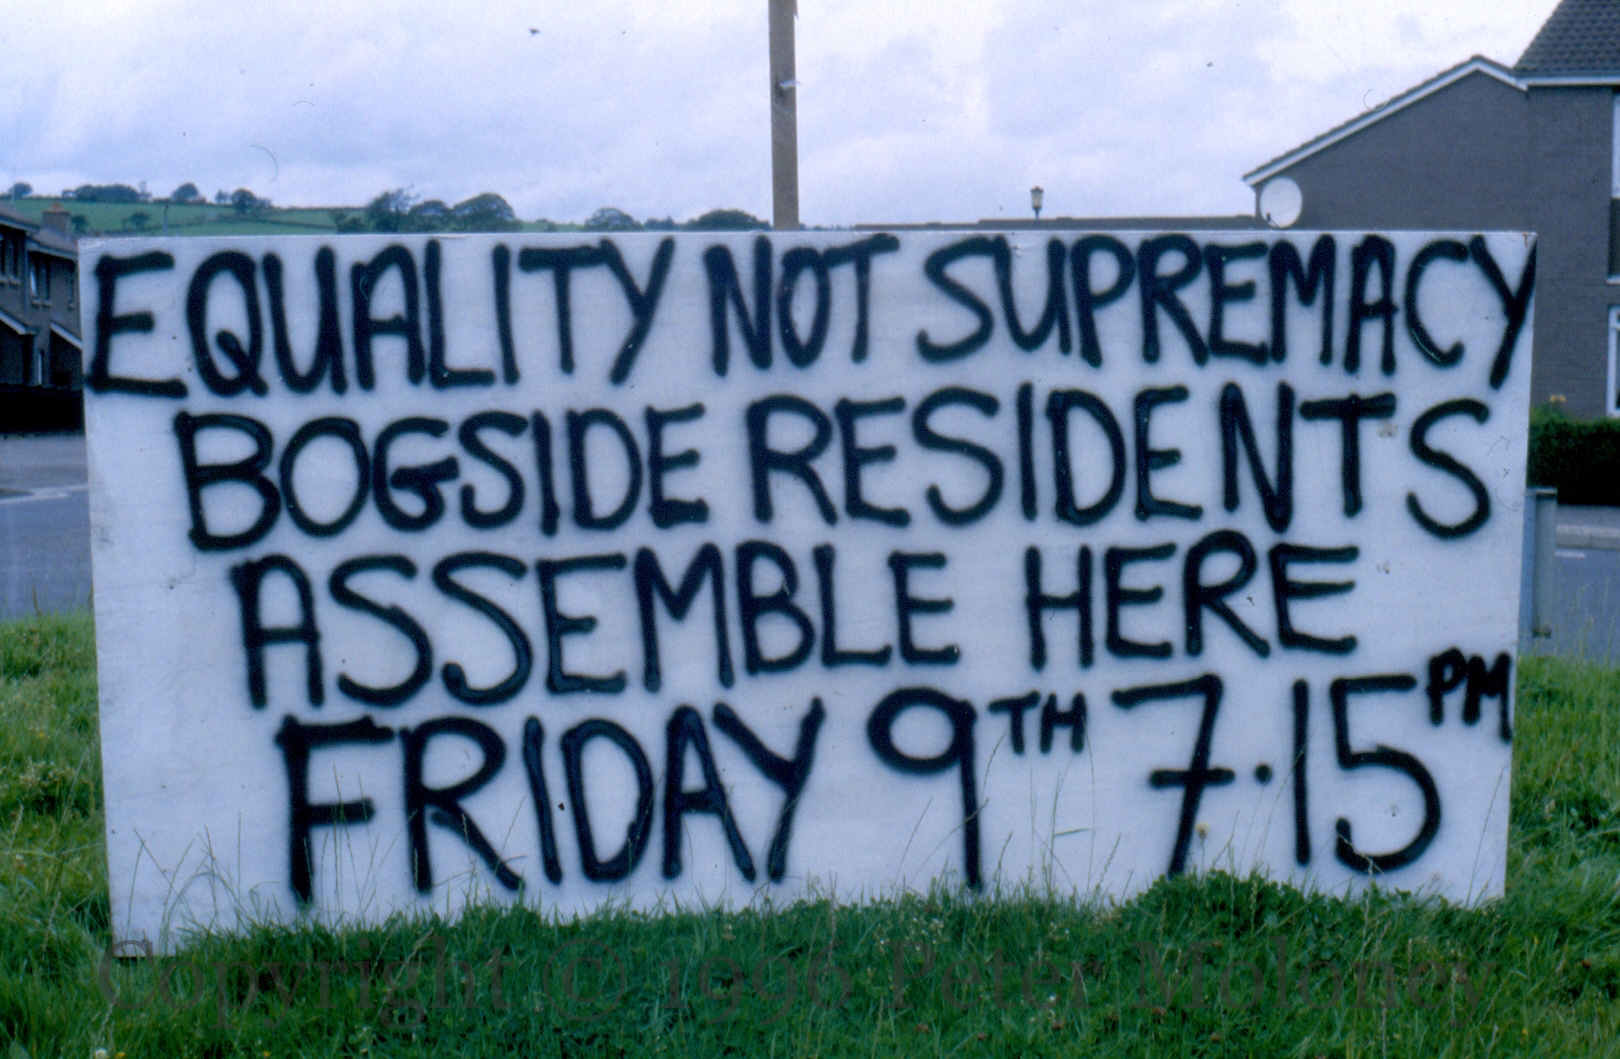 EQUALITY NOT SUPREMACY
BOGSIDE RESIDENTS
ASSEMBLE HERE
FRIDAY 9TH 7.15PM
Copyright © 1996 Peter Moloney